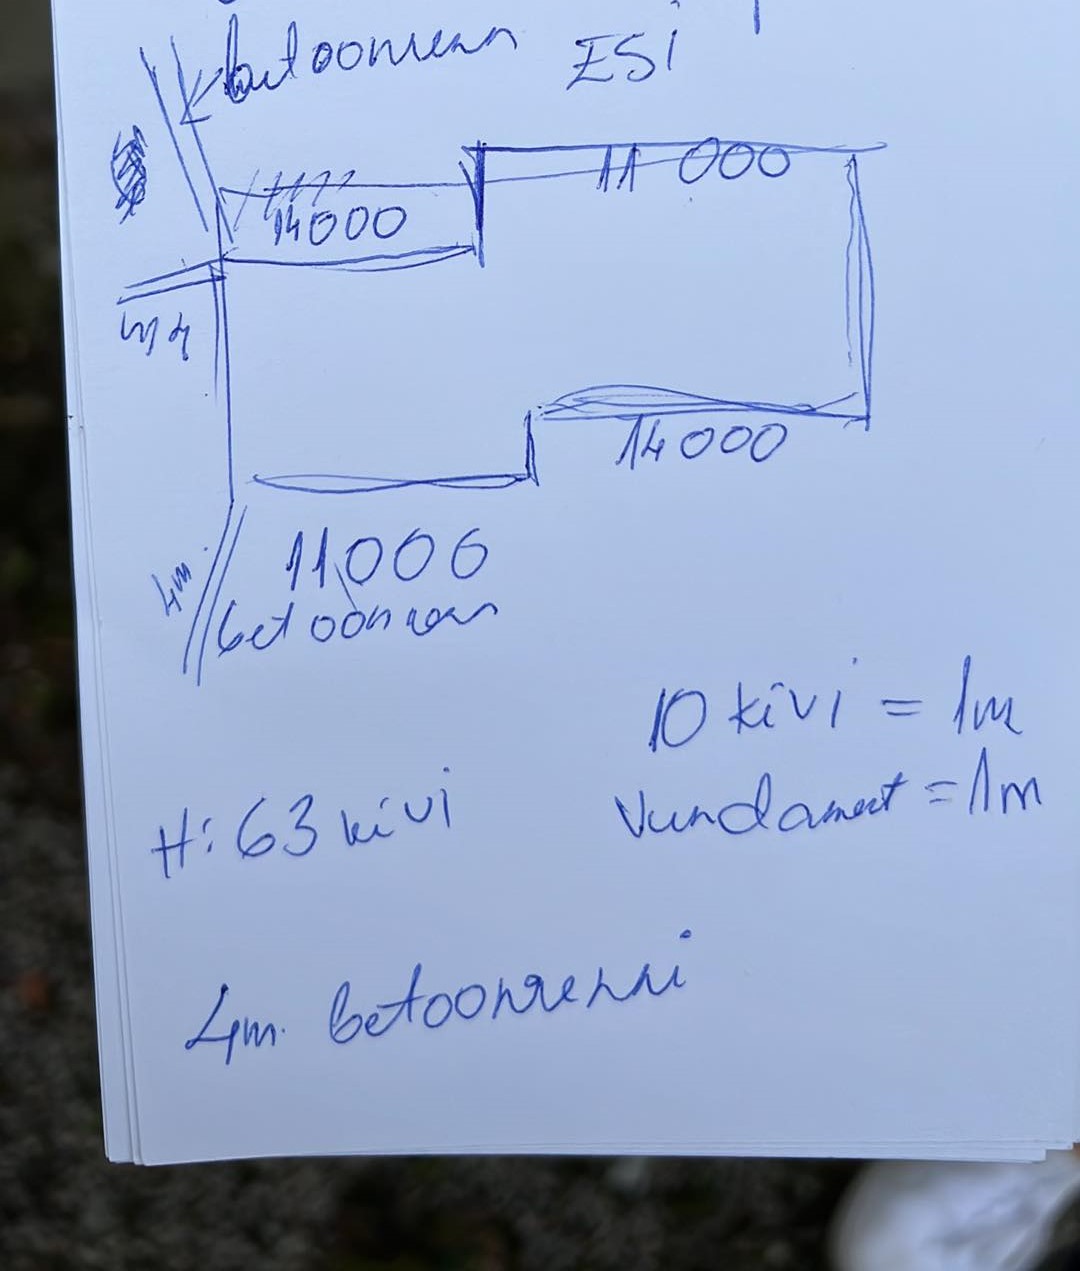 betoonrenn
ESI
11 000
14000
4m
14000
11000
4m
betoonrenn
10 kivi = 1m
Vundament = 1m
H: 63 kivi
4m. betoonrenni